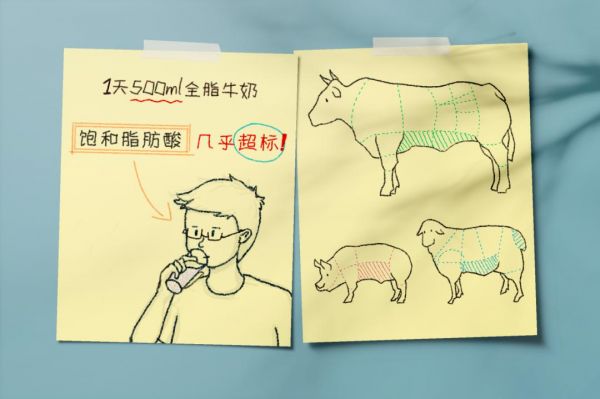 1天500ml全脂牛奶
饱和脂肪酸 几乎超标!